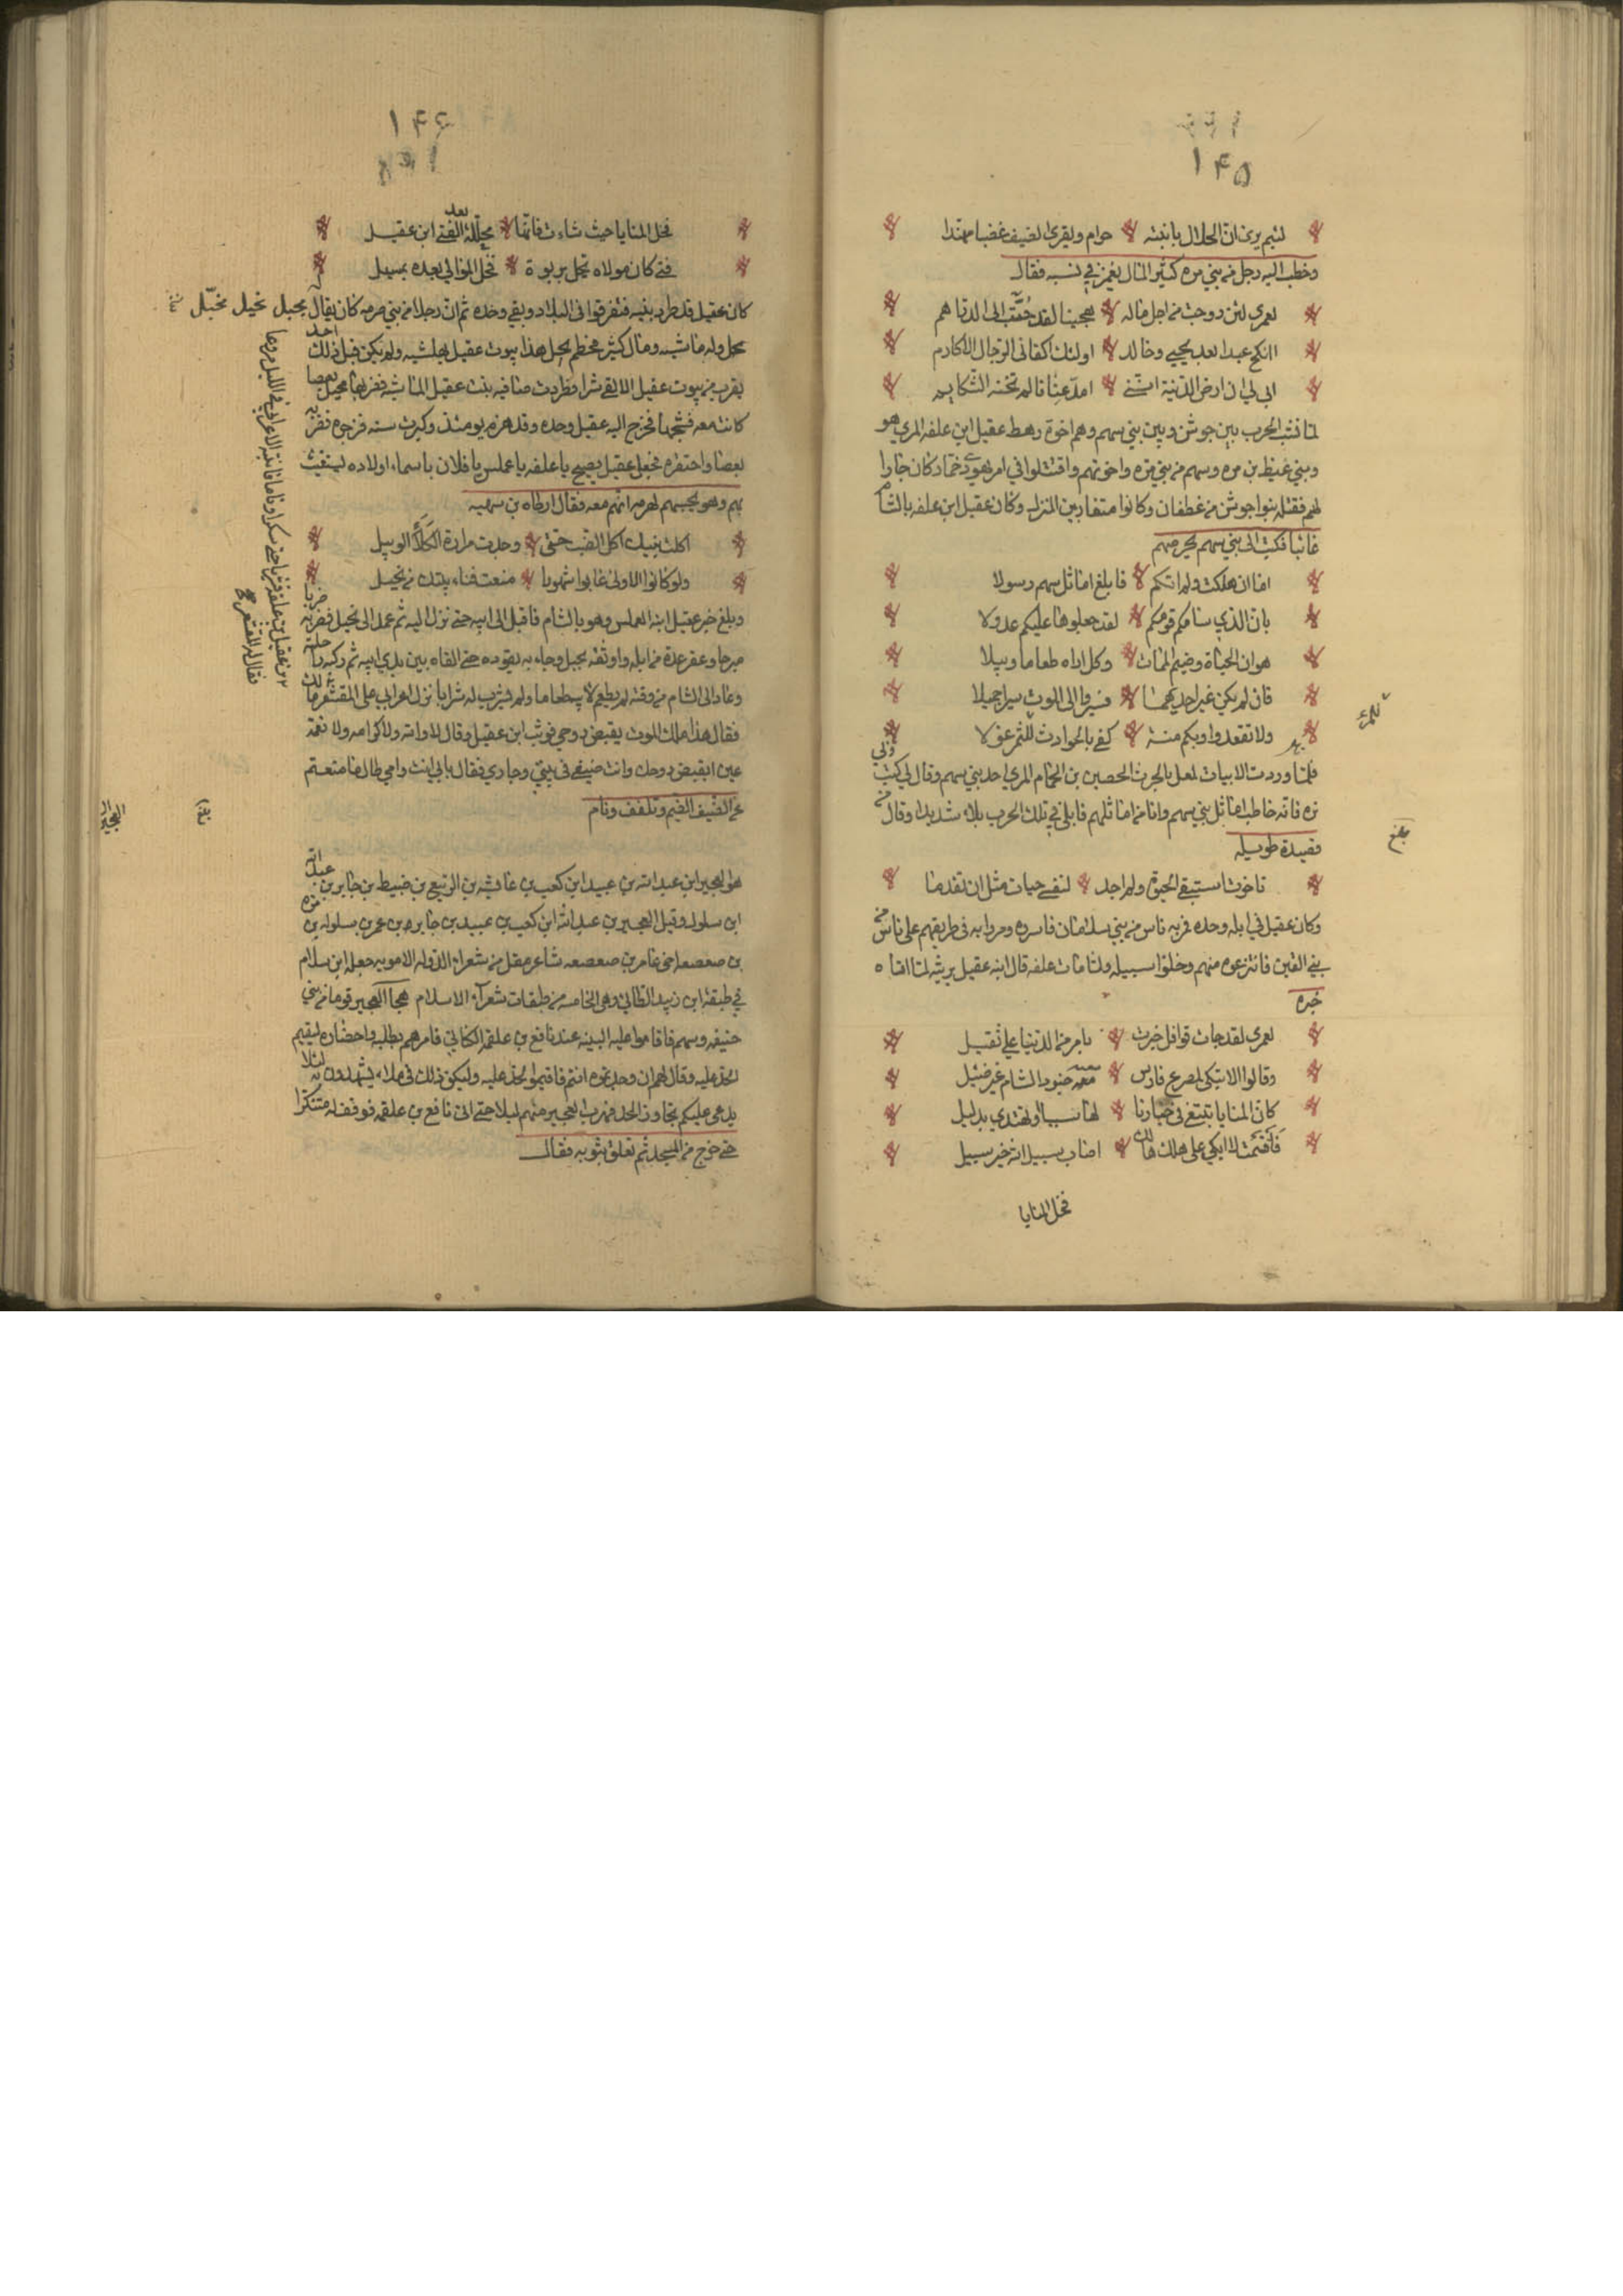 ١٤٥
لئيم يرى ان الحلال بابنته حرام ويقري الضيف عضبا مهندا
وخطب اليه رجل من بني مره كثير المال يغمز في نسبه فقال
لعمري لئن زوجت من اجل ماله هجينا لقد حُبّت الي الدراهم
اانكح عبدا بعد يحيى وخالد اولئك اكفائي الرجال الاكارم
ابى لي ان ارضى الدنية انني امد عنانا لم تخنه الشكايم
لما نشب الحرب بين جوشن وبين بني سهم وهم اخوة رهط عقيل ابن علفه المري هو
وبني غيظ بن مره وسهم من بني مره واخوتهم واقتتلوا في امر يهودي خمار كان جارا
لهم فقتله بنوا جوشن من غطفان وكانوا متقاربين المنزل وكان عقيل ابن علفه بالشام
غائبا فكتب الى بني سهم يحرضهم
اما ان هلكت ولم اتكم فابلغ اماثل سهم رسولا
بان الذي سامكم قومكم لقد جعلوها عليكم عدولا
هوان الحياة وضيم الممات وكل اراه طعاما وبيلا
فان لم يكن غير احديهما فسيروا الى الموت سيرا جميلا
ولا تقعدوا وبكم منة كفى بالحوادث للمرء غولا
للمرء
فلما وردت الابيات تمثل بالحرب الحصين بن الحمام المري احد بني سهم وقال لي كتب
وبي
فانه خاطب اماثل بني سهم وانا من اماثلهم فابلى في تلك الحرب بلاء شديدا وقال من
بلغ
قصيدة طويله
تاخرت استبقي الحيوة ولم اجد لنفسي حيات مثل ان تقدما
وكان عقيل في ابله وحده فمر به ناس من بني سلامان فاسروه ومروا به في طريقهم على ناس من
بني القين فانتزعوه منهم وخلوا سبيله ولما مات علفه قال ابنه عقيل يرثيه لما اتاه
خبره
لعمري لقد جات قوافل خبرت بامر من الدنيا علي ثقيل
وقالوا الا تبكي لمصرع فارس نعته جنود الشام غير ضئيل
كان المنايا تبتغي في خيارنا لها نسبا او تهتدي بدليل
فاقسمت لا ابكي على هلك هالك اصاب سبيل الله خير سبيل
فخل المنايا
١٤٦
فخل المنايا حيث شاءت فانها محللة بعد الفتى ابن عقيل
فتى كان مولاه يحل بربوة فحل الموالي بعده بمسيل
كان عقيل قد طرد بنيه فتفرقوا في البلاد وبقي وحده ثم ان رجلا من بني صرمه كان يقال بجيل نخيل
بجيل وله ماشيه ومال كثير فحطم بجيل هذا بيوت عقيل بماشيه ولم يكن قبل ذلك احد
يقرب من بيوت عقيل الا لقي شرا وطردت صافيه بنت عقيل الماشيه فضربها بجيل بعصا
كانت معه فشجها فخرج اليه عقيل وحده وقد هرم يومئذ وكبرت سنه فزجره فضربه
بعصا واحتقره فجعل عقيل يصيح يا علفه يا عملس يا فلان باسماء اولاده ليستغيث
بهم وهو يحسبهم لهرمه انهم معه فقال ارطاه بن سهيه
اكلت بنيك اكل الضب حتى وجدت مرارة الكلأ الوبيل
ولو كانوا الاولى غابوا شهودا منعت فناء بيتك من بجيل
وبلغ خبر عقيل ابنه العملس وهو بالشام فاقبل الى ابيه حتى نزل اليه ثم عمد الى بجيل فضربه ضربا
مبرحا وعقر عدة من ابله واوثقه بحبل وجاء به يقوده حتى القاه بين يدي ابيه ثم ركب راحلته
وعاد الى الشام من وقته لم يطعم لابيه طعاما ولم يشرب له شرابا نزل اعرابي على المقشعر
فقال هذا ملك الموت يقبض روحي فوثب ابن عقيل وقال لا والله ولا كرامه ولا نعمة
عين ايقبض روحك وانت ضيفي في بيتي وجاري فقال بابي انت وامي طال ما منعتم
من الضيف الضيم وتلفف ونام
العجير
هو العجير ابن عبد الله بن عبيد ابن كعب بن عائشه بن الربيع بن ضبيط بن جابر بن عبد الله
ابن سلول وقيل العجير بن عبد الله ابن كعب بن عبيد بن جابر بن عمر بن سلول بن مره
بن صعصعه اخي عامر بن صعصعه شاعر مقل من شعراء الدوله الامويه جعله ابن سلام
في طبقة ابن زبيد الطائي وهي الخامسه من طبقات شعرآء الاسلام هجا العجير قوما من بني
حنيفه وسهم فاقاموا عليه البينه عند نافع بن علقمه الكناني فامرهم بطلبه واحضاره ليقيم
الحد عليه وقال لهم ان وجدتموه انتم فاقيموا الحد عليه وليكن ذلك في ملاء يشهدون به لئلا
يدعي عليكم تجاوز الحد فهرب العجير منهم ليلا حتى اتى نافع بن علقمه فوقف له متنكرا
حتى خرج من المسجد ثم تعلق بثوبه فقال